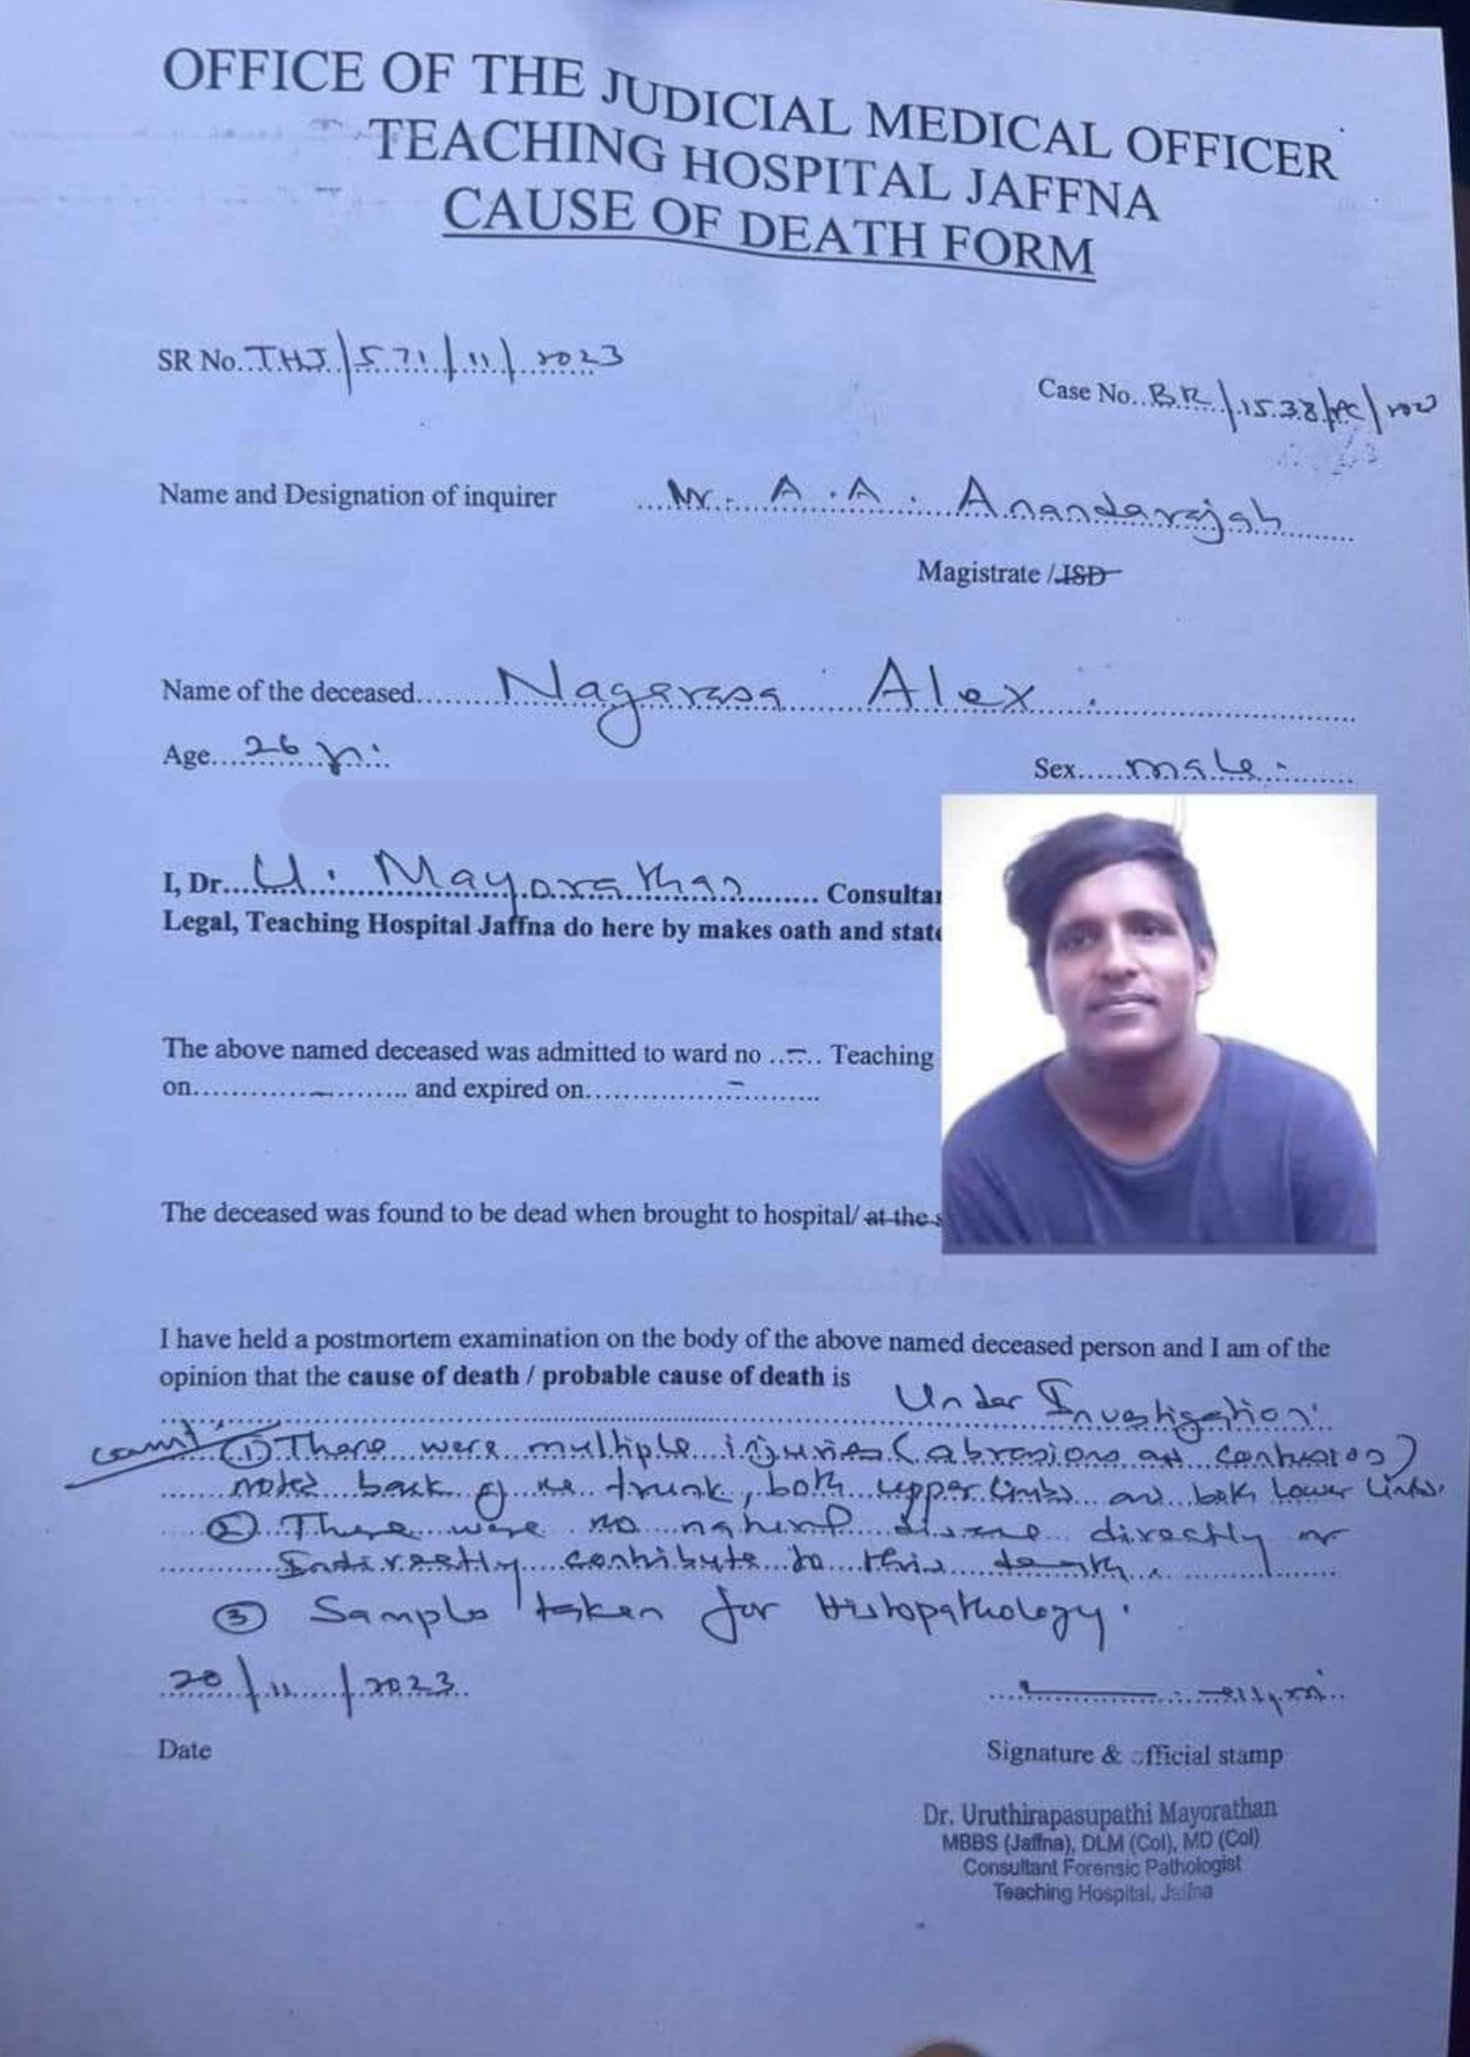 OFFICE OF THE JUDICIAL MEDICAL OFFICER
TEACHING HOSPITAL JAFFNA
CAUSE OF DEATH FORM
SR No. THJ/571/11/2023
Case No. BR/1538/PC/
Name and Designation of inquirer Mr. A.A. Anandarajah
Magistrate / JSD
Name of the deceased Nagarasa Alex.
Age 26
Sex male.
I, Dr. U. Mayorathan Consultan
Legal, Teaching Hospital Jaffna do here by makes oath and state
The above named deceased was admitted to ward no - Teaching
on - and expired on -
The deceased was found to be dead when brought to hospital/ at the s
I have held a postmortem examination on the body of the above named deceased person and I am of the
opinion that the cause of death / probable cause of death is
Under Investigation.
① There were multiple injuries (abrasions and contusions)
noted back of the trunk, both upper limbs and both lower limbs.
② There were no natural disease directly or
Indirectly contribute to this death.
③ Sample taken for Histopathology.
20/11/2023
Date
Signature & official stamp
Dr. Uruthirapasupathi Mayorathan
MBBS (Jaffna), DLM (Col), MD (Col)
Consultant Forensic Pathologist
Teaching Hospital, Jaffna